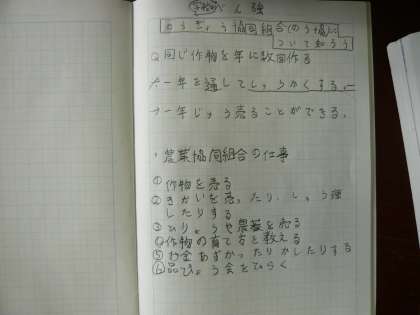 べん強
のうぎょう協同組合(のう協)に
ついて知ろう
Q同じ作物を年に数回作る
A一年を通してしゅうかくする。
一年じゅう売ることができる。
・農業協同組合の仕事
①作物を売る
②きかいを売ったり、しゅう理
したりする
③ひりょうや農薬を売る
④作物の育て方を教える
⑤お金あずかったりかしたりする
⑥品ぴょう会をひらく